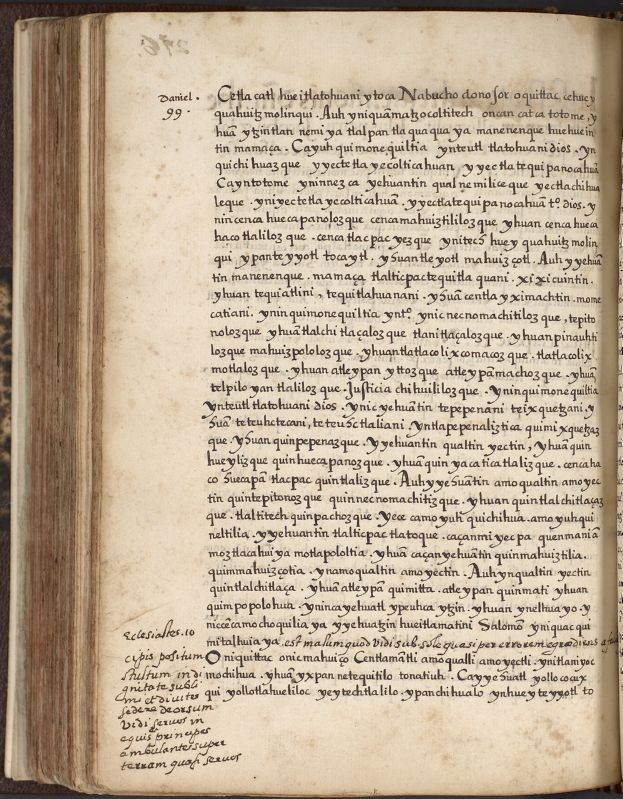 276.
Daniel.
99.
Cetlacatl hueitlatohuani ytoca Nabuchodonosor oquittac cehuey
quahuitz molinqui. Auh yniquam atzocoltitech oncan catca totome, y
huā ytzintlan nemi ya tlalpan tlaqua qua ya manenenque huehuein
tin mamaça. Cayuh quimonequiltia ynteutl tlatohuani dios. yn
quichihuaz que yyectetla yecolticahuan yyectlatequi panocahuā
Cayntotome yninnez ca yehuantin qualnemilice que yectlachihua
leque. yniyectetla yecolticahuā. yyectlatequi panocahuā tº. dios. y
nincenca huecapanoloz que cencamahuiztililoz que yhuan cenca hueca
haco tlaliloz que. cenca tlacpac yez que ynitech huey quahuitz molin
qui ypanteyyotl tocaytl. yhuan tleyotl mahuizçotl. Auh yyehuā
tin manenenque. mamaça tlalticpactequitla quani. xixicuintin.
yhuan tequiatlini, tequitlahuanani. yhuā centlayximachtin. mome
catiani. yninquimonequiltia yntº. ynic necnomachitiloz que, tepito
noloz que yhuā tlalchitlaçaloz que tlanitlaçaloz que. yhuan pinauhti
loz que mahuizpololoz que. yhuan tlatlacolixcomacoz que. tlatlacolix
motlaloz que. yhuan atleypan yttoz que atleypāmachoz que. yhuā
telpiloyan tlaliloz que. Justicia chihuililoz que. yninquimonequiltia
ynteutl tlatohuani dios. ynic yehuantin tepepenani teixquetzani. y
huā tetecuhtecani, teteuhctlaliani. yntlapepenaliztica quimixquetzaz
que. yhuan quinpepenaz que. yyehuantin qualtin yectin, yhuā quin
hueyliz que quinhuecapanoz que. yhuā quin yacatica tlaliz que. cencaha
co huecapā tlacpac quintlaliz que. Auh yyehuātin amoqualtin amoyec
tin quintepitonoz que quinnecnomachitiz que. yhuan quintlalchitlaçaz
que. tlaltitech quinpachoz que. yece camo yuh quichihua. amo yuhqui
neltilia. yyehuantin tlalticpac tlatoque. caçanmiyecpa quenmaniā
moztlacahuiya motlapololtia. yhuā caçanyehuātin quinmahuiztilia.
quimmahuizçotia. ynamoqualtin amoyectin. Auh ynqualtin yectin
quintlalchitlaça. yhuā atleypā quimitta. atleypan quinmati yhuan
quimpopolohua. ynincayehuatl ypeuhca ytzin. yhuan ynelhuayo. y
nicēcamochoquilia ya yyehuatzin hueitlamatini Salomō yniquac qui
mitalhuia ya. est malum quod vidi sub sole quasi per errorem egrediens a facie
Oniquittac onicmahuiço Centlamātli amoqualli amoyectli. ynitlaniyoc
mochihua. yhuā yxpan netequitilo tonatiuh. Cayyehuatl yollocoux
qui yollotlahueliloc yeytechtlalilo. ypanchihualo ynhueyteyyotl to
Eclesiastes. 10
cipis positum
stultum in di
gnitate subli
mi et divites
sedere deorsum
Vidi servos in
equis et principes
ambulantes super
terram quasi servos